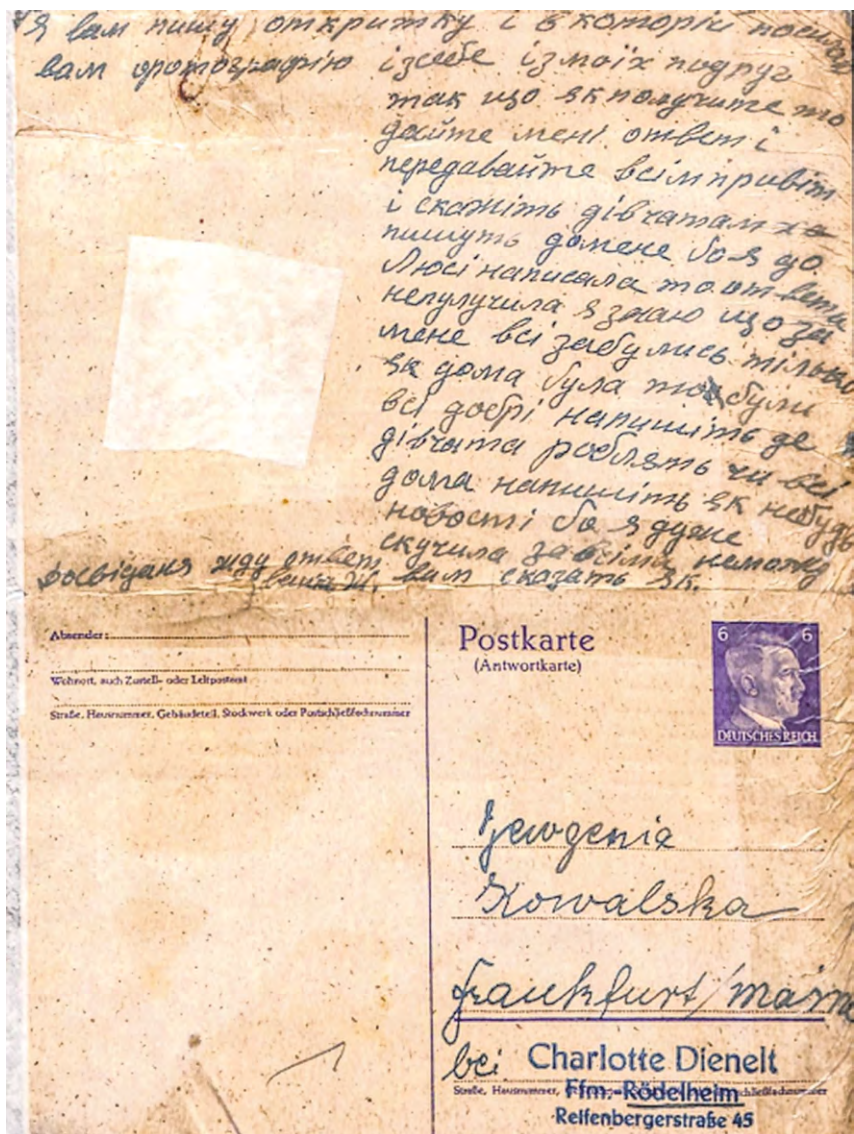 Я вам пишу откритку і вкоторій посилаю
вам фотографію ізсебе ізмоїх подруг
так що як получите то
дайте мені ответ і
передавайте всім привіт
і скажіть дівчатам ха
пишуть домене бо я до
Люсі написала то ответа
неполучила я знаю що за
мене всі забулись тільки
як дома була то були
всі добрі напишіть де
дівчата роблять чи всі
дома напишіть як небудь
новості бо я дуже
скучила завсіма неможу
досвіданя жду ответ вам сказать як.
ваша Ж.
Absender:
Wohnort, auch Zustell- oder Leitpostamt
Straße, Hausnummer, Gebäudeteil, Stockwerk oder Postschließfachnummer
Postkarte
(Antwortkarte)
6 6
DEUTSCHES REICH
Jewgenia
Kowalska
Frankfurt/Main
bei Charlotte Dienelt
Ffm.-Rödelheim
Straße, Hausnummer, schließfachnummer
Reifenbergerstraße 45